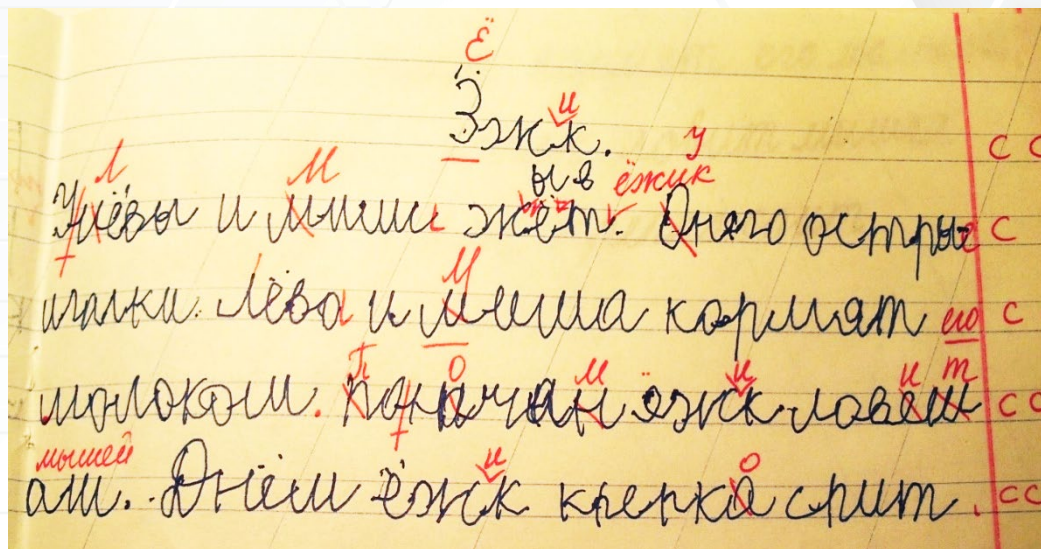 Ё
Эжк. и
Л М ыв ёжик у
Улёвы и миши жёт. Оняго остры с
иголки. лёва и миша кормят его с
молоком. поначам ёжк ловеш с с
мышей
ам. Днём ёжк крепка спит. с с